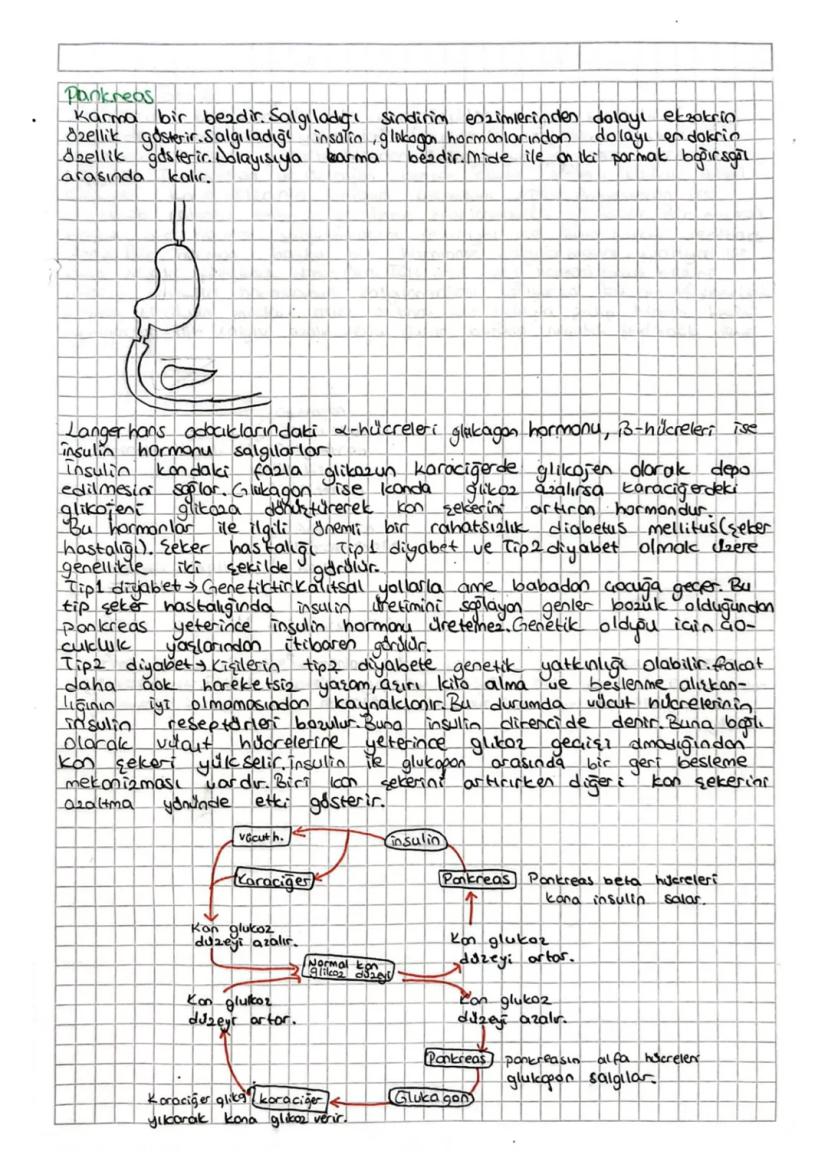 Pankreas
Karma bir bezdir. Salgıladığı sindirim enzimlerinden dolayı ekzokrin
özellik gösterir. Salgıladığı insülin, glukagon hormonlarından dolayı endokrin
özellik gösterir. Dolayısıya karma bezdir. Mide ile on iki parmak bağırsağı
arasında kalır.
Langerhans adacıklarındaki α-hücreleri glukagon hormonu, β-hücreleri ise
insulin hormonu salgılarlar.
insulin kandaki fazla glikozun karaciğerde glikojen olarak depo
edilmesini sağlar. Glukagon ise kanda glikoz azalırsa karaciğerdeki
glikojeni glikoza dönüştürerek kan şekerini artıran hormondur.
Bu hormonlar ile ilgili önemli bir rahatsızlık diabetus mellitus (şeker
hastalığı). Şeker hastalığı Tip1 diyabet ve Tip2 diyabet olmak üzere
genellikle iki şekilde görülür.
Tip1 diyabet → Genetiktir. Kalıtsal yollarla anne babadan çocuğa geçer. Bu
tip şeker hastalığında insulin üretimini sağlayan genler bozuk olduğundan
pankreas yeterince insulin hormonu üretemez. Genetik olduğu için ço-
cukluk yaşlarından itibaren görülür.
Tip2 diyabet → Kişilerin tip2 diyabete genetik yatkınlığı olabilir. fakat
daha çok hareketsiz yaşam, aşırı kilo alma ve beslenme alışkan-
lığının iyi olmamasından kaynaklanır. Bu durumda vücut hücrelerinin
insulin reseptörleri bozulur. Buna insulin direnci de denir. Buna bağlı
olarak vücut hücrelerine yeterince glikoz geçişi olmadığından
kan şekeri yükselir. insulin ile glukagon arasında bir geri besleme
mekanizması vardır. Biri kan şekerini artırırken diğeri kan şekerini
azaltma yönünde etki gösterir.
vücut h.
insulin
Karaciğer
Pankreas
Pankreas beta hücreleri
kana insulin salar.
Kan glukoz
düzeyi azalır.
Kan glukoz
düzeyi artar.
Normal kan
glikoz düzeyi
Kan glukoz
düzeyi artar.
Kan glukoz
düzeyi azalır.
Pankreas
pankreasın alfa hücreleri
glukagon salgılar.
Karaciğer
karaciğer
Glukagon
yıkarak kana glikoz verir.